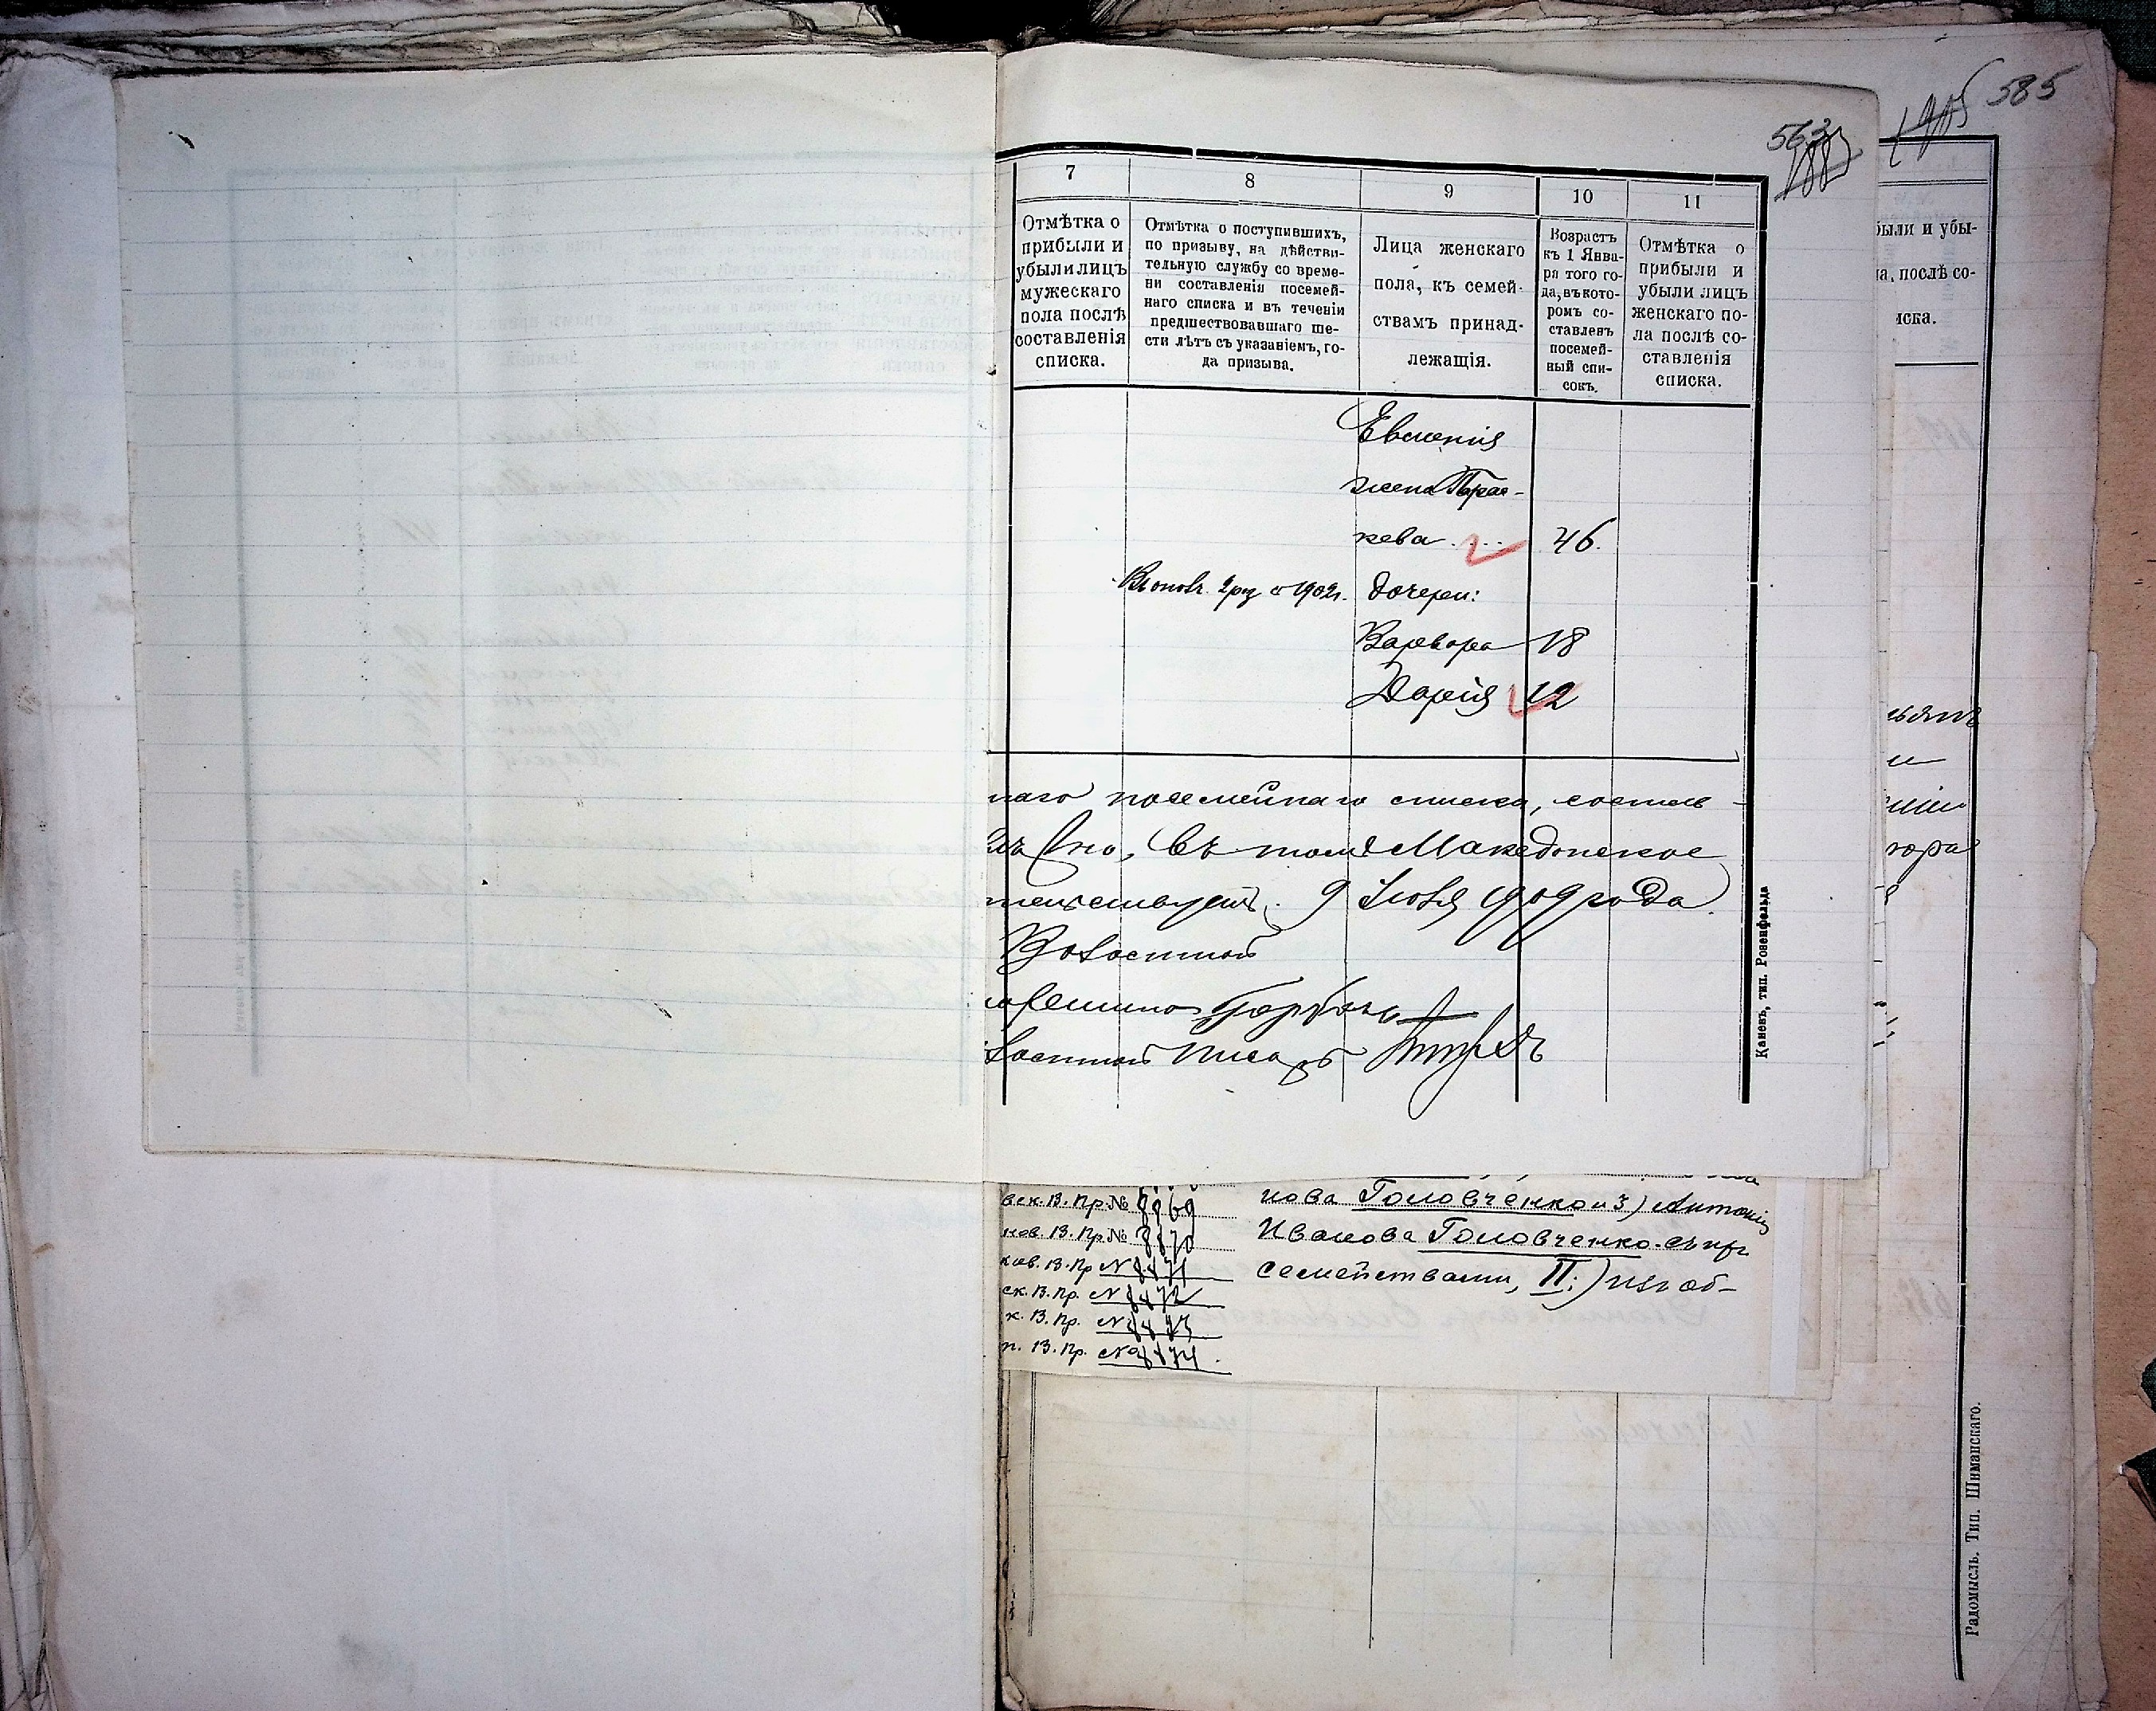 585
563
7
8
9
10
11
Отмѣтка о
прибыли и
убыли лицъ
мужескаго
пола послѣ
составленія
списка.
Отмѣтка о поступившихъ,
по призыву, на дѣйстви-
тельную службу со време-
ни составленія посемей-
наго списка и въ теченіи
предшествовавшаго ше-
сти лѣтъ съ указаніемъ, го-
да призыва.
Лица женскаго
пола, къ семей-
ствамъ принад-
лежащія.
Возрастъ
къ 1 Янва-
ря того го-
да, въ кото-
ромъ со-
ставленъ
посемей-
ный спи-
сокъ.
Отмѣтка о
прибыли и
убыли лицъ
женскаго по-
ла послѣ со-
ставленія
списка.
были и убы-
а, послѣ со-
иска.
Евменія
жена Парас-
кева 46.
1902г. дочери:
Варвара 18
Дарія 12
наго посемейнаго списка, состав-
въ томъ Македонское
тельствуетъ. 9 Іюля 1909 года.
Волостной
Горбань
лостной Писарь
Каневъ, тип. Розенфельда
век. В. Пр. № 8869
нов. В. Пр. № 8870
ков. В. Пр № 8871
ск. В. Пр. № 8872
к. В. Пр. № 8873
п. В. Пр. № 8874.
нова Головченко и 3) Антонія
Иванова Головченко съ ихъ
семействами, II:) изъ об-
Радомысль. Тип. Шиманскаго.